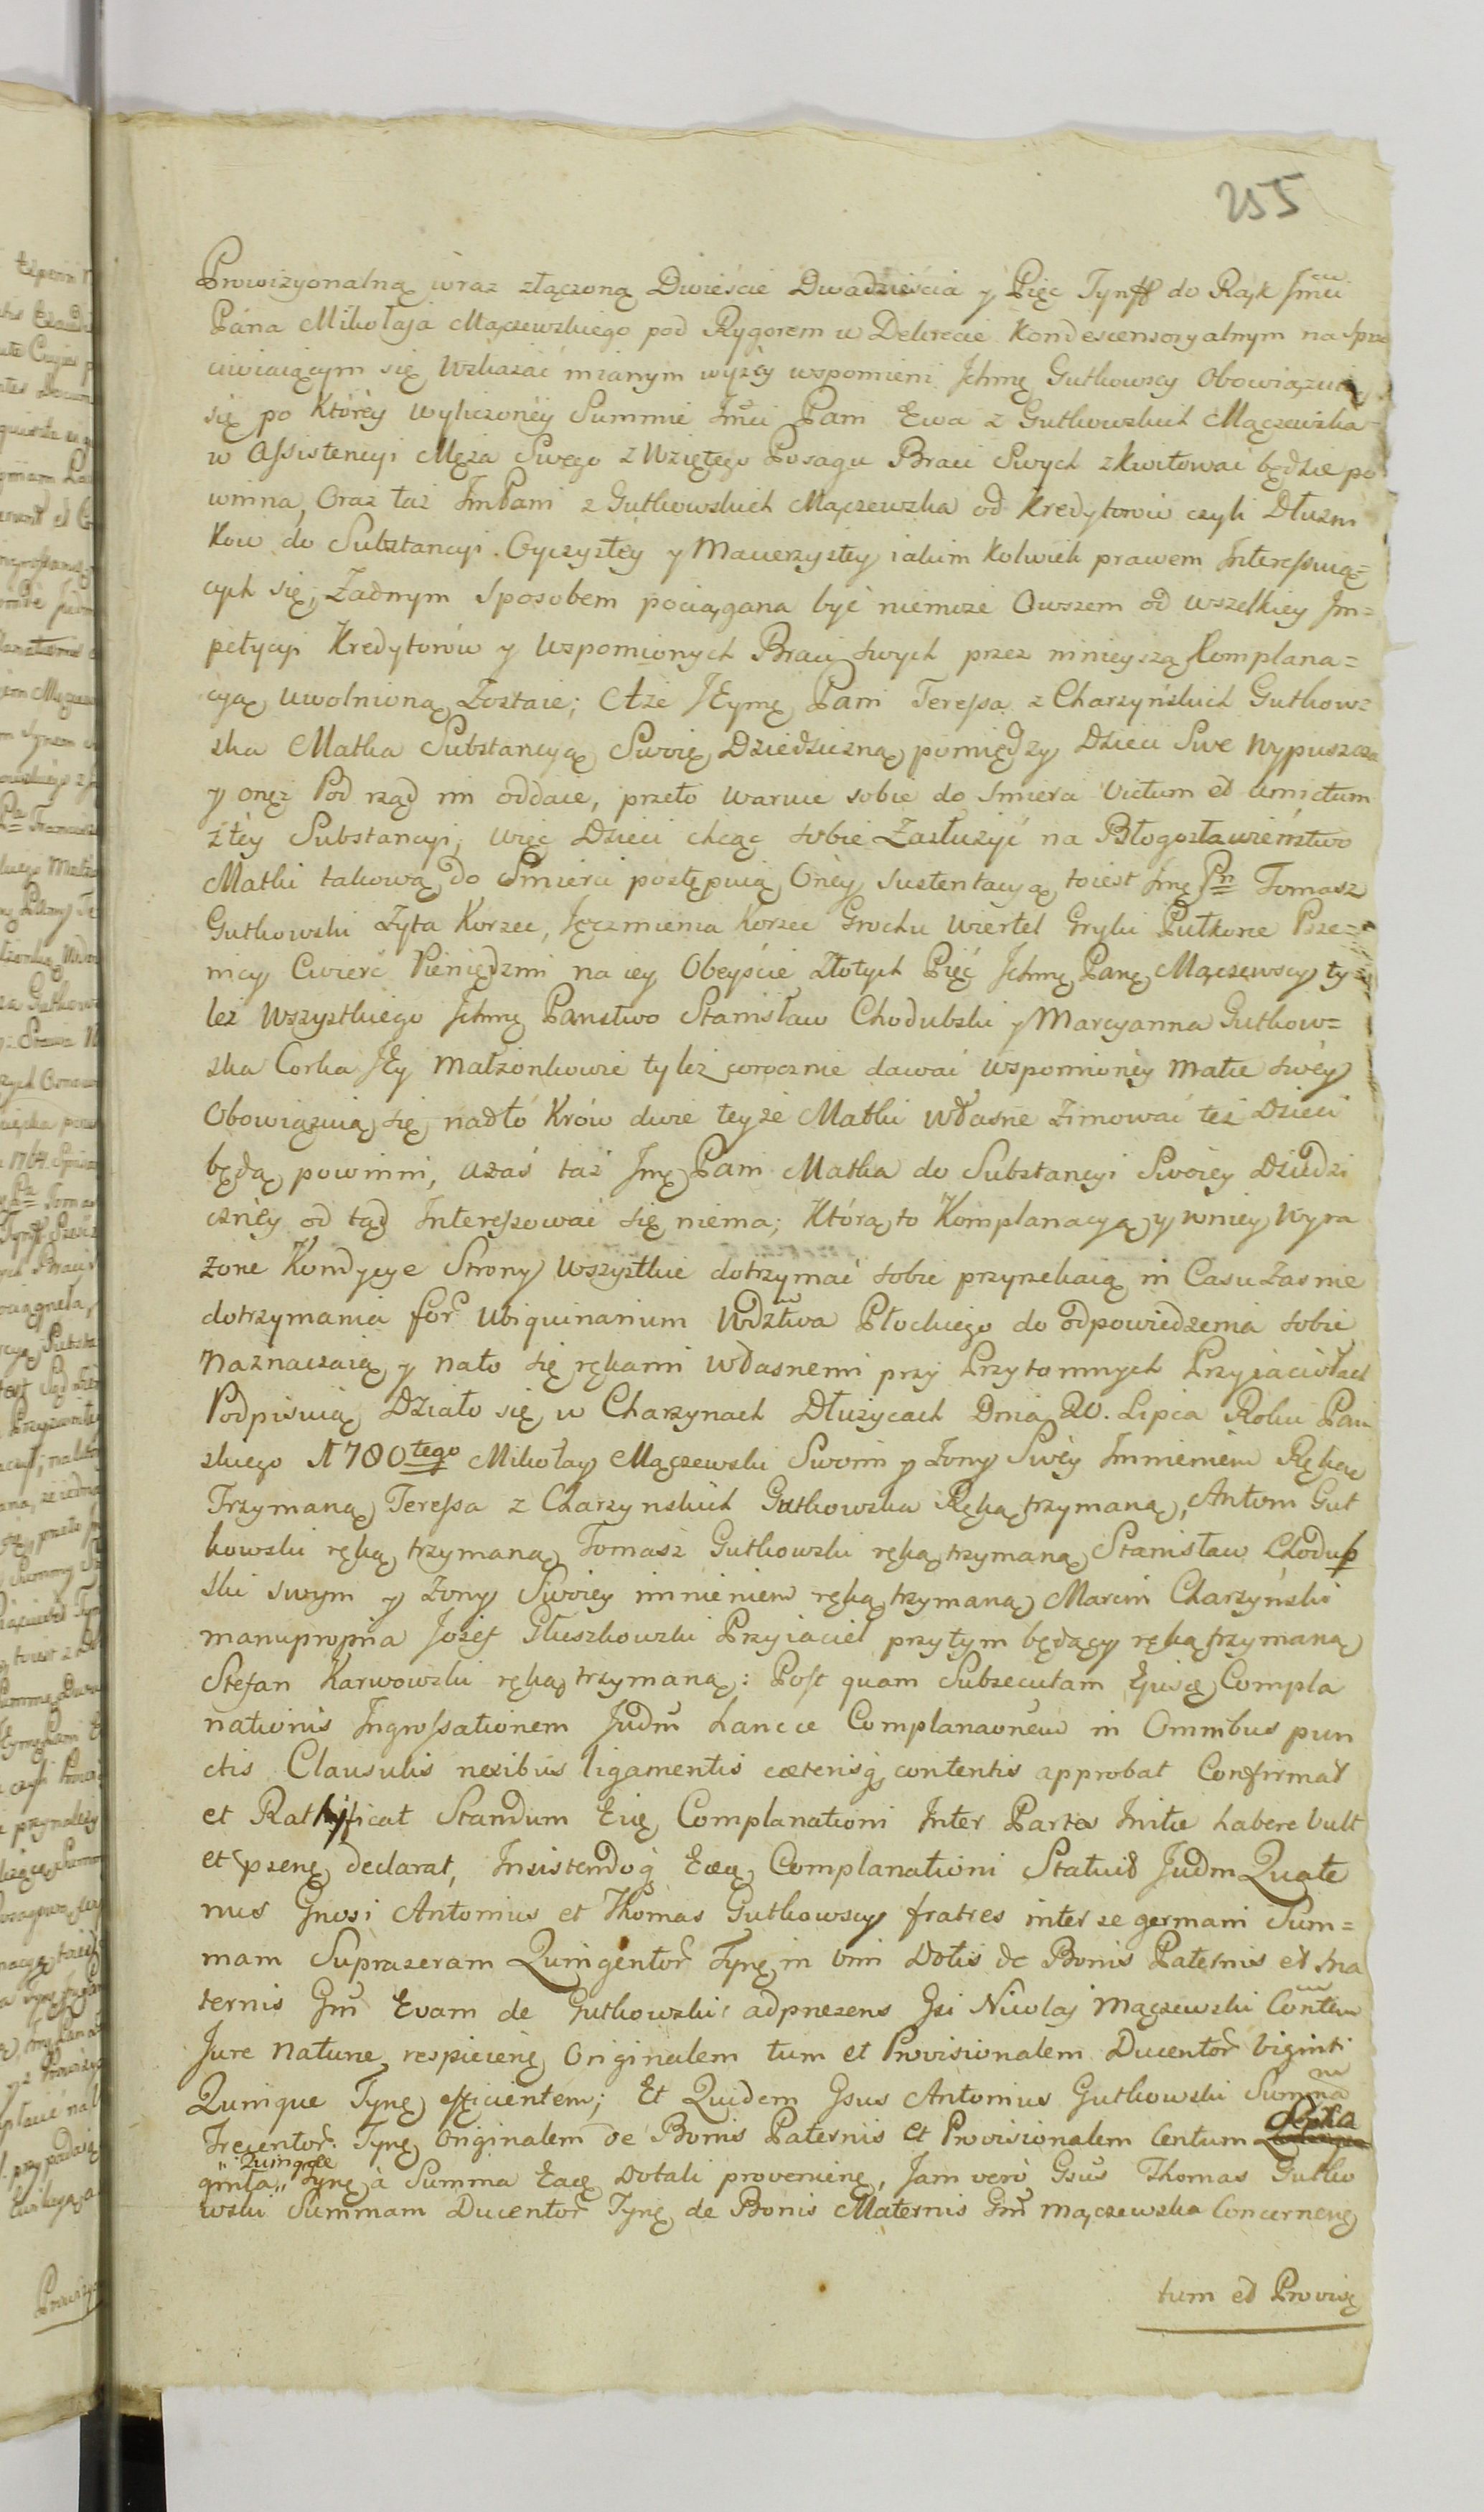 255
Prowizyonalną wraz złączoną Dwieście Dwadzieścia y Pięc Tynff do Rąk Jmći
Pána Mikołaja Mączewskiego pod Rygorem w Dekrecie Kondescensoryalnym na Sprze
ciwiaiącym się wskazać mianym wyżéy wspomieni Jchmę Gutkowscy Obowiązuią
się po Któréy wyliczonéy Summie Jmći Pani Ewa z Gutkowskich Mączewska
w Assistencyi Męża Swego z Wziętego Posagu Braci Swych zkwitować będzie po
winna, Oraz taż JmPani z Gutkowskich Mączewska od Kredytorów czyli Dłużni
ków do Substancyi Oyczystéy y Macierzystey iakim kolwiek prawem Interessuią=
cych się, Żadnym Sposobem pociągana być niemoże Owszem od wszelkiey Jm=
petycyi Kredytorów y Wspomionych Braci swych przez ninieyszą Komplana=
cyą uwolnioną Zostaie; Aże JEymę Pani Teressa z Charzyńskich Gutkow=
ska Matka Substancyą Swoię Dziedziczną pomiędzy Dzieci Swe wypuszcza
y onęż Pod rząd im oddaie, przeto waruie sobie do śmierci Victum et amictum
z téy Substancyi, więc Dzieci chcąc sobie Zasłużyć na Błogosławieństwo
Matki takową do Śmierci postępuią Onéy Sustentacyą toiest Jmę Pn Tomasz
Gutkowski Żyta Korzec, Jęczmienia Korzec Grochu Wiertel Gryki Pułkorce Psze=
nicy Cwierć Pieniędzmi na iey Obeyście Złotych Pięć Jchmę Panę Mączewscy ty=
leż Wszystkiego Jchmę Panstwo Stanisław Chodubski y Marcyanna Gutkow=
ska Corka JEy Małżonkowie tyleż corocznie dawać wspomionéy Matce swéy
Obowiązuią się nadto Krów dwie teyże Matki Własne Zimować też Dzieci
będą powinni, uzaś taż Jmę Pani Matka do Substancyi Swoiey Dziedzi
cznéy od tąd Interessować się niema; Którą to Komplanacyą y wniey wyra
żone Kondycye Strony Wszystkie dotrzymać sobie przyrzekaią in Casu Zas nie
dotrzymania for Ubiquinarium Wdztwa Płockiego do odpowiedzenia sobie
Naznaczaią y nato się rękami własnemi przy Przytomnych Przyiaciołach
Podpisuią Działo się w Charzynach Dłużycach Dnia 20. Lipca Roku Pań
skiego 1780tego Mikołay Mączewski Swoim y Żony Swéy Immieniem Ręką
Trzymaną Teressa z Charzynskich Gutkowska Ręką trzymaną, Antoni Gut
kowski ręką trzymaną Tomasz Gutkowski ręką trzymaną Stanisław Chodup
ski swym y Żony Swoiey immieniem ręką trzymaną Marcin Charzyński
manupropria Jozef Głuszkowski Przyiaciel przytym będący ręką trzymaną
Stefan Karwowski ręką trzymaną: Post quam Subsecutam Ejusę Compla
nationis Ingrossationem Judm hancce Complanaonem in Omnibus pun
ctis Clausulis nexibus ligamentis cæterisq contentis approbat Confirmat
et Rathificat Standum Eię Complanationi Inter Partes Initæ habere vult
et pręnę declarat, Insistendoq Eæq Complanationi Statuit Judm Quate
nus Gnosi Antonius et Thomas Gutkowscy fratres inter se germani Sum=
mam Suprazeram Quingentor Tynę in vim Dotis de Bonis Paternis et ma
ternis Gm Evam de Gutkowskie adprezens Gsi Nicolaj Mączewski Contem
Jure Naturæ respicienę Originalem tum et Provisionalem Ducentor viginti
Quinque Tynę efficientem; Et Quidem Gsus Antonius Gutkowski Summam
Trecentor Tynę Originalem de Bonis Paternis et Provisionalem Centum
ginta „Quinque„ Tynę à Summa Eacę Dotali provenienę, Jam verò Gsus Thomas Gutko
wski Summam Ducentor Tynę de Bonis Maternis Gm Mączewska Concernenę
tum et Provisę